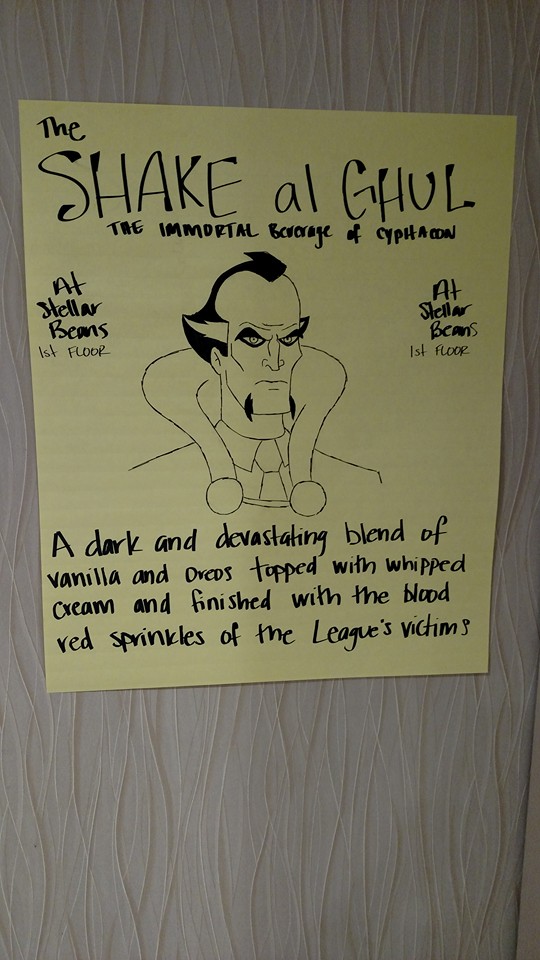 The
SHAKE al GHUL
THE IMMORTAL Beverage of CYPHACON
At
Stellar
Beans
1st FLOOR
At
Stellar
Beans
1st FLOOR
A dark and devastating blend of
vanilla and Oreos topped with whipped
cream and finished with the blood
red sprinkles of the League's victims